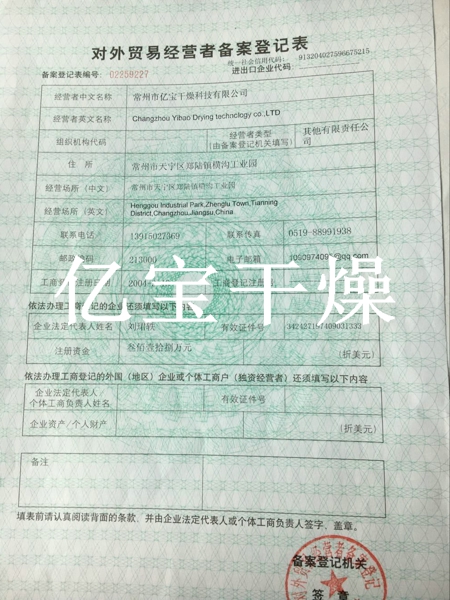 对外贸易经营者备案登记表
统一社会信用代码： 913204027596675215
备案登记表编号： 02259227 进出口企业代码：
经营者中文名称 常州市亿宝干燥科技有限公司
经营者英文名称 Changzhou Yibao Drying technology co.,LTD
组织机构代码 经营者类型（由备案登记机关填写） 其他有限责任公司
住 所 常州市天宁区郑陆镇横沟工业园
经营场所（中文） 常州市天宁区郑陆镇横沟工业园
经营场所（英文） Henggou Industrial Park,Zhenglu Town,Tianning
District,Changzhou,Jiangsu,China
联系电话 13915027369 联系传真 0519-88991938
邮政编码 213000 电子邮箱 @qq.com
工商登记注册日期 2004- 工商登记注册
亿宝干燥
依法办理工商登记的企业还须填写以下内容
企业法定代表人姓名 有效证件号
注册资金 叁佰壹拾捌万元 （折美元）
依法办理工商登记的外国（地区）企业或个体工商户（独资经营者）还须填写以下内容
企业法定代表人/
个体工商负责人姓名 有效证件号
企业资产/个人财产 （折美元）
备注
填表前请认真阅读背面的条款，并由企业法定代表人或个体工商负责人签字、盖章。
备案登记机关
签 章